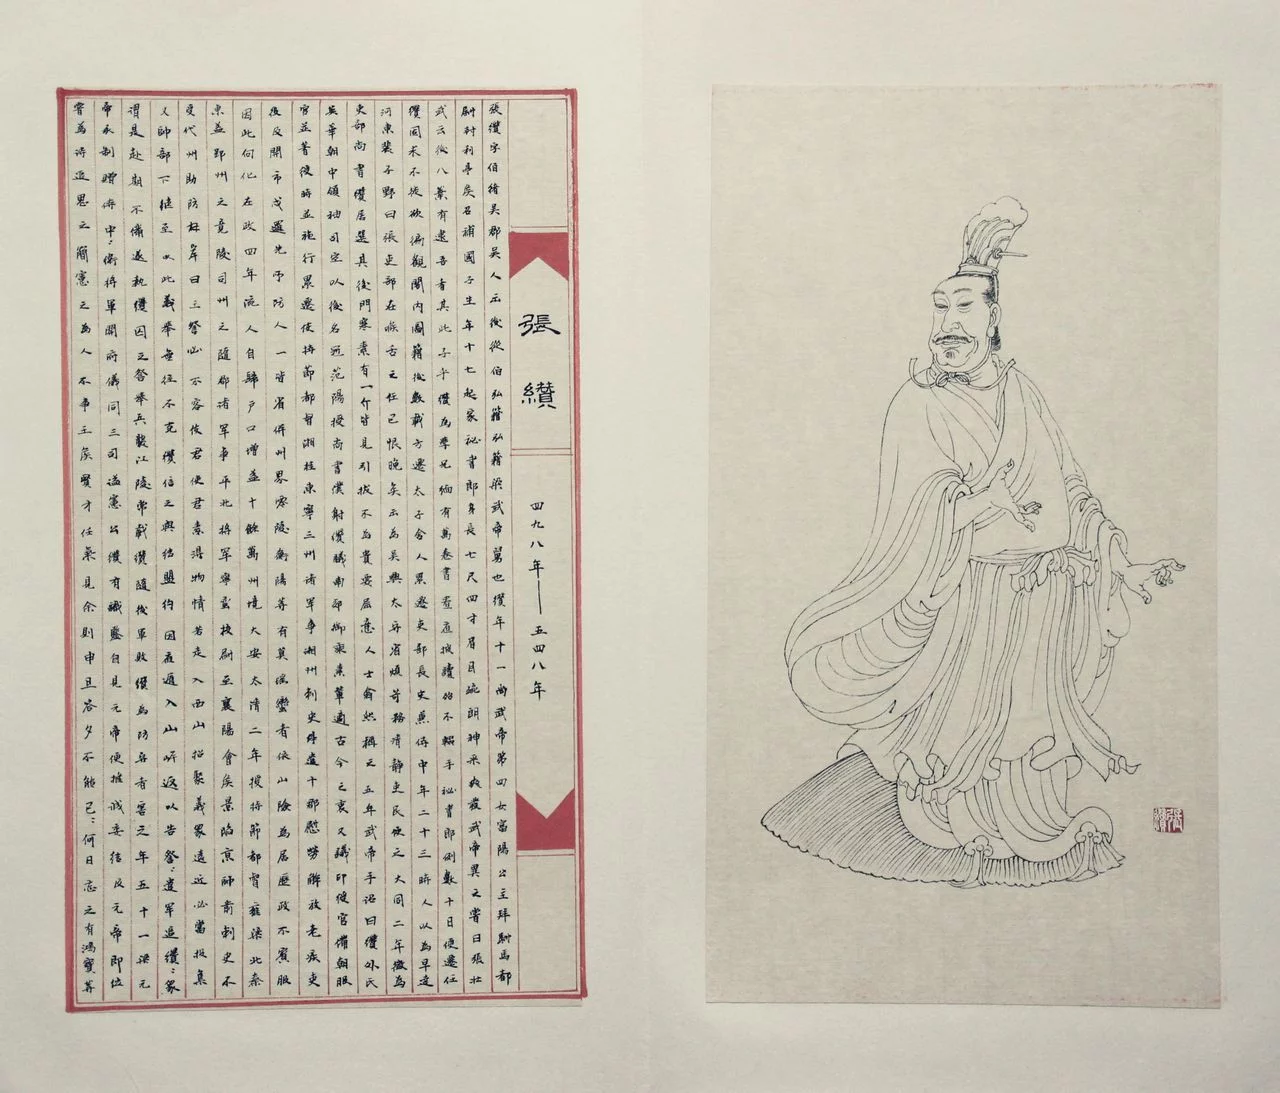 張纘
四九八年——五四八年
張纘字伯緒吳郡吳人出後從伯弘籍弘籍梁武帝舅也纘年十一尚武帝第四女富陽公主拜駙馬都
尉封利亭侯召補國子生年十七起家祕書郎身長七尺四寸眉目疏朗神采爽發武帝異之嘗曰張壯
武云後八葉有逮吾者其此子乎纘為學兄緬有萬卷書晝夜披讀殆不輟手祕書郎例數十日便遷任
纘固求不徙欲徧觀閣內圖籍後數載方遷太子舍人累遷吏部長史兼侍中年二十三時人以為早達
河東裴子野曰張吏部在喉舌之任已恨晚矣出為吳興太守省煩苛務清靜吏民便之大同二年徵為
吏部尚書纘居選其後門寒素有一介皆見引拔不為貴要屈意人士翕然稱之五年武帝手詔曰纘外氏
英華朝中領袖司空以後名冠范陽授尚書僕射纘議南郊御乘素輦適古今之衷又議印綬官備朝服
官並著綬時並施行累遷使持節都督湘桂東寧三州諸軍爭湘州刺史停遣十郡慰勞解放老疾吏
役及關市戍邏先所防人一皆省併州界零陵衡陽等有莫徭蠻者依山險為居歷政不賓服
因此向化在政四年流人自歸戶口增益十餘萬州境大安太清二年授持節都督雍梁北秦
東益郢州之竟陵司州之隨郡諸軍事平北將軍寧蠻校尉至襄陽會侯景陷京師前刺史不
受代州助防杜岸曰三詧必不容使君使君素得物情若走入西山招聚義眾遠近必當投集
又帥部下繼至以此義舉無往不克纘信之與結盟約因夜遁入山岸返以告詧：遣軍追纘：眾
謂是赴期不備遂執纘因之詧舉兵襲江陵常載纘隨後軍敗纘為防守者害之年五十一梁元
帝承制贈侍中：衛將軍開府儀同三司謚憲公纘有識鑒自見元帝便推誠委結及元帝即位
嘗為詩追思之簡憲之為人不事王侯負才任氣見余則申旦答夕不能已：何日忘之有鴻寶等
張纘